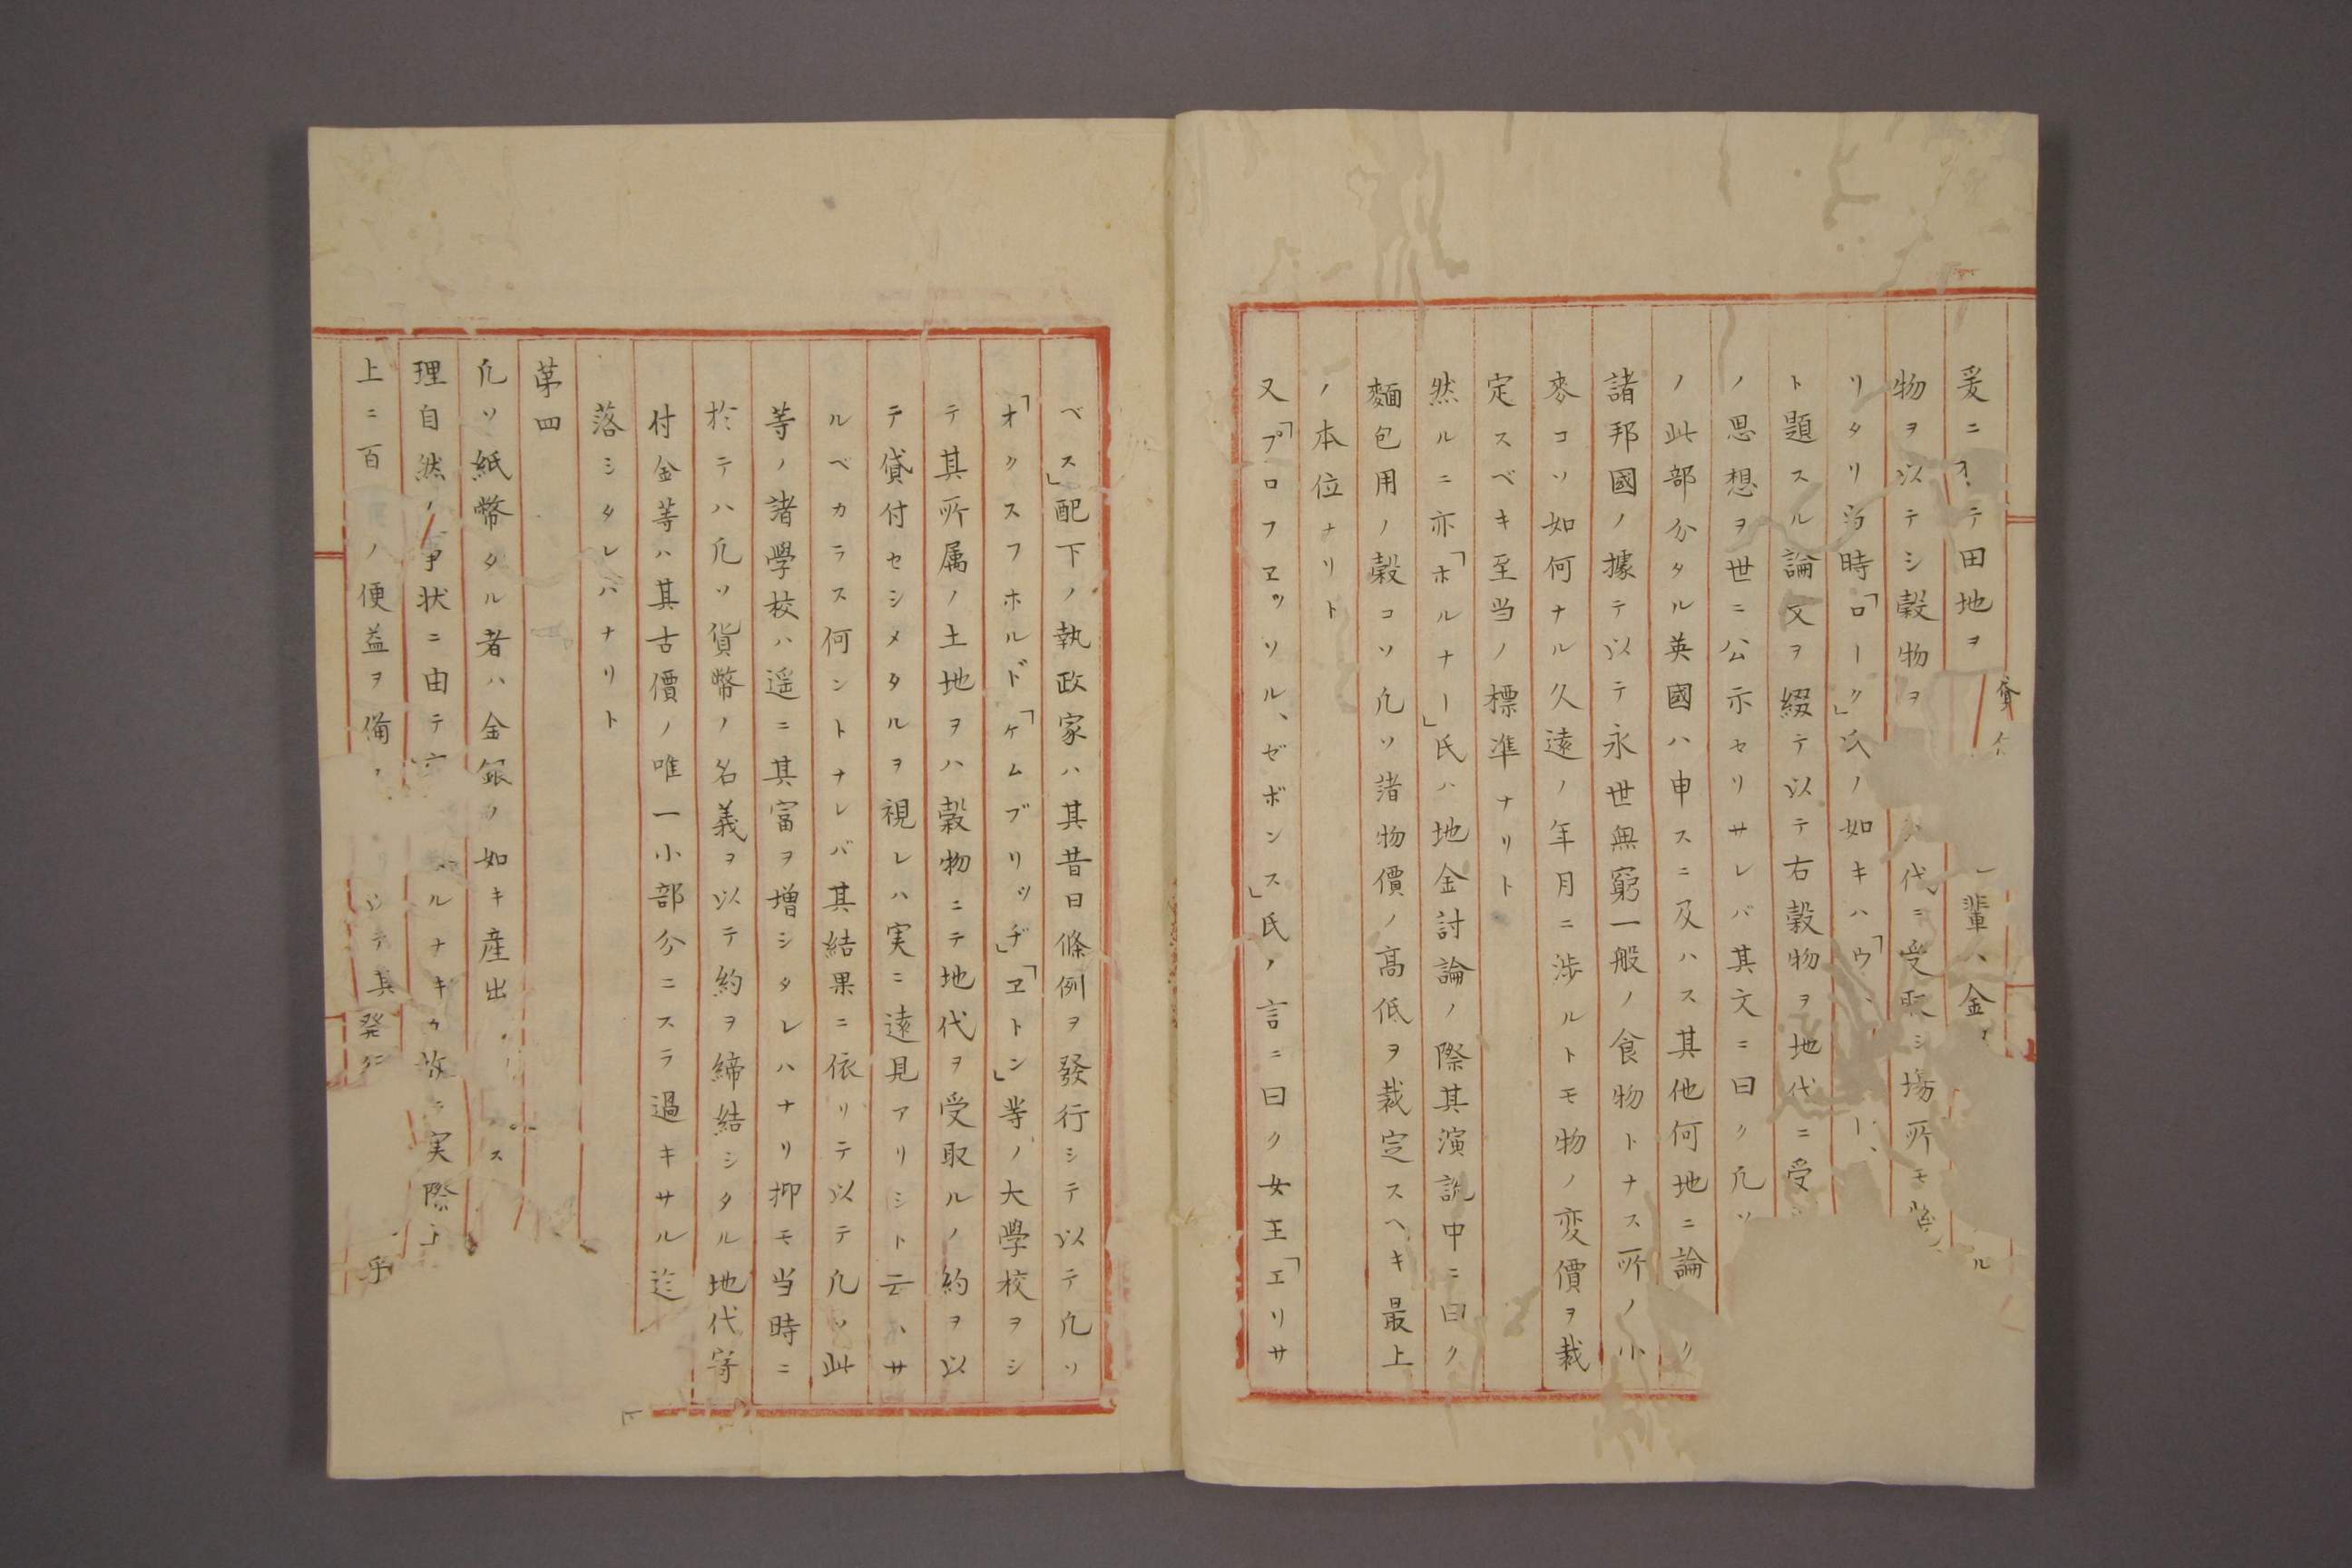 爰ニオテ田地ヲ貸一輩ハ金ル
物ヲ以テシ穀物ヲ代ニ受取シ塲所モ
リタリ当時「ローク」氏ノ如キハ「ウ
ト題スル論文ヲ綴テ以テ右穀物ヲ地代ニ受
ノ思想ヲ世ニ公示セリサレバ其文ニ曰ク凡ソ
ノ此部分タル英國ハ申スニ及ハス其他何地ニ論ク
諸邦國ノ據テ以テ永世無窮一般ノ食物トナス所ノ小
麥コソ如何ナル久遠ノ年月ニ渉ルトモ物ノ変價ヲ裁
定スベキ至当ノ標準ナリト
然ルニ亦「ホルナー」氏ハ地金討論ノ際其演説中ニ曰ク
麺包用ノ穀コソ凡ソ諸物價ノ高低ヲ裁定スヘキ最上
ノ本位ナリト
又「プロフヱッソル、ゼボンス」氏ノ言ニ曰ク女王「エリサ
ベス」配下ノ執政家ハ其昔日條例ヲ發行シテ以テ凡ソ
「オクスフホルド「ケムブリッヂ」「ヱトン」等ノ大學校ヲシ
テ其所属ノ土地ヲハ穀物ニテ地代ヲ受取ルノ約ヲ以
テ貸付セシメタルヲ視レハ実ニ遠見アリシト云ハサ
ルベカラス何ントナレバ其結果ニ依リテ以テ凡ソ此
等ノ諸學校ハ遥ニ其富ヲ増シタレハナリ抑モ当時ニ
於テハ凡ソ貨幣ノ名義ヲ以テ約ヲ締結シタル地代寄
付金等ハ其古價ノ唯一小部分ニスラ過キサル迄
落シタレバナリト
第四
凡ソ紙幣タル者ハ金銀ノ如キ産出ス
理自然ノ事状ニ由テルナキカ故ニ実際上
上ニ百ノ便益ヲ備シテ其発行乎